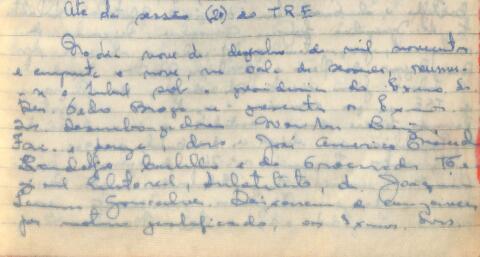 Ata da sessão (20) do TRE
No dia nove de dezembro de mil novecentos
e cinquenta e nove, na sala de sessões, reuniu-
se o Tribunal sob a presidência do Exmo. Sr.
Des. Pedro Braga e presentes os Exmos
Srs. desembargadores
, drs. José Américo
e do Procurador Re-
gional Eleitoral, Substituto, dr. Joaquim
Gonçalves. Deixaram de comparecer
por motivo justificado, os Exmos. Srs.